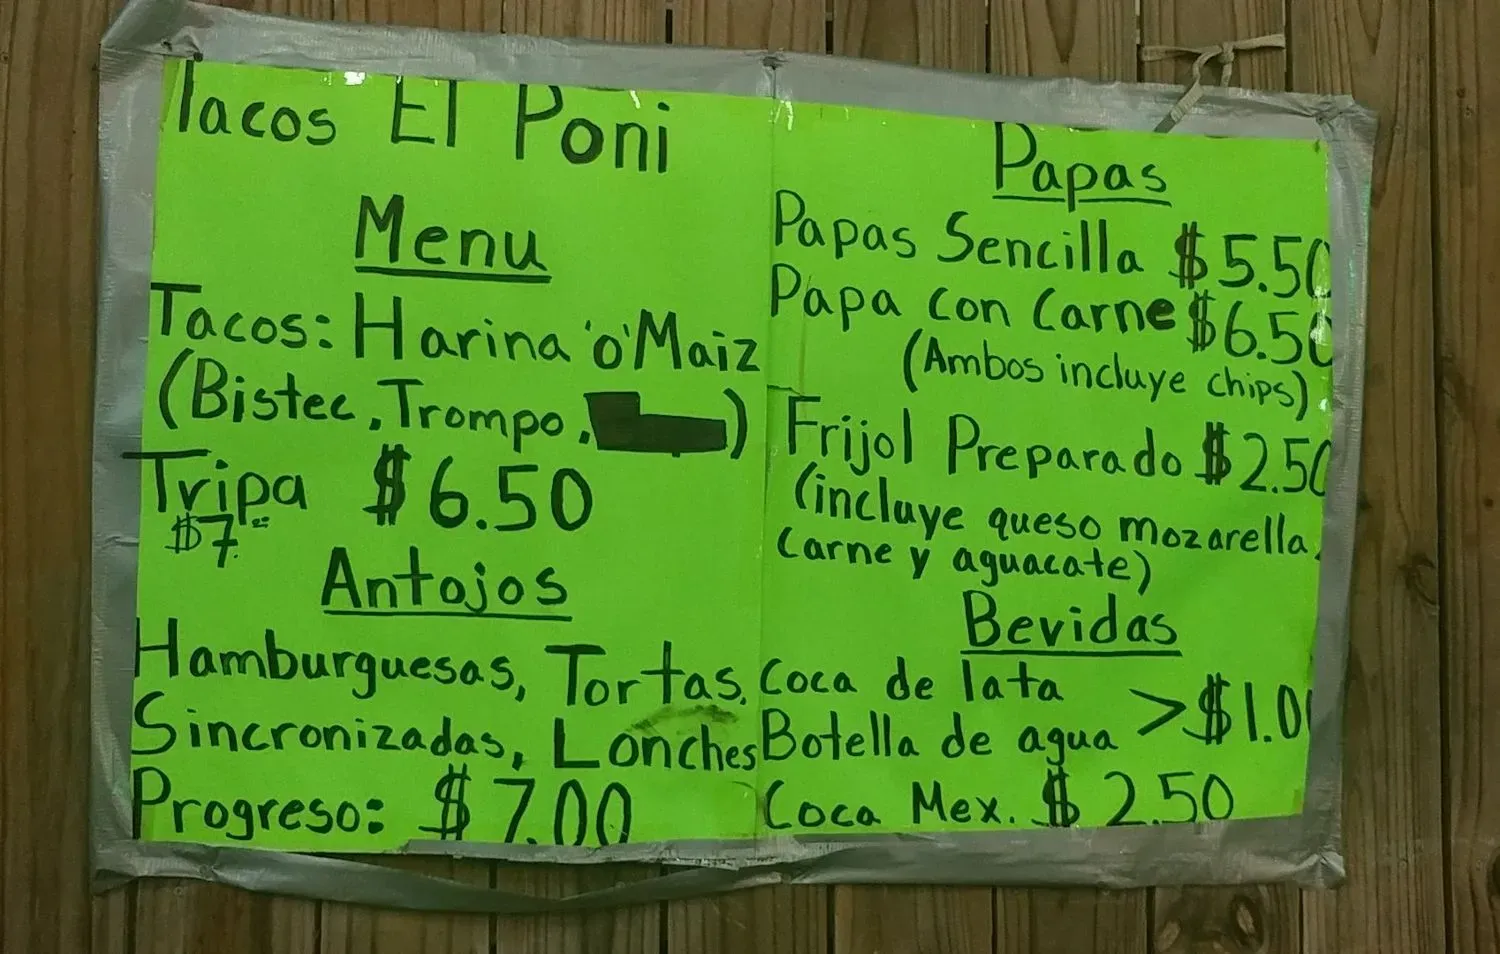 Tacos El Poni
Menu
Tacos: Harina 'o' Maiz
(Bistec, Trompo, )
Tripa $6.50
$7.=
Antojos
Hamburguesas, Tortas,
Sincronizadas, Lonches
Progreso: $7.00
Papas
Papas Sencilla $5.50
Papa con Carne $6.50
(Ambos incluye chips)
Frijol Preparado $2.50
(incluye queso mozarella,
Carne y aguacate)
Bevidas
Coca de lata
Botella de agua >$1.00
Coca Mex. $2.50